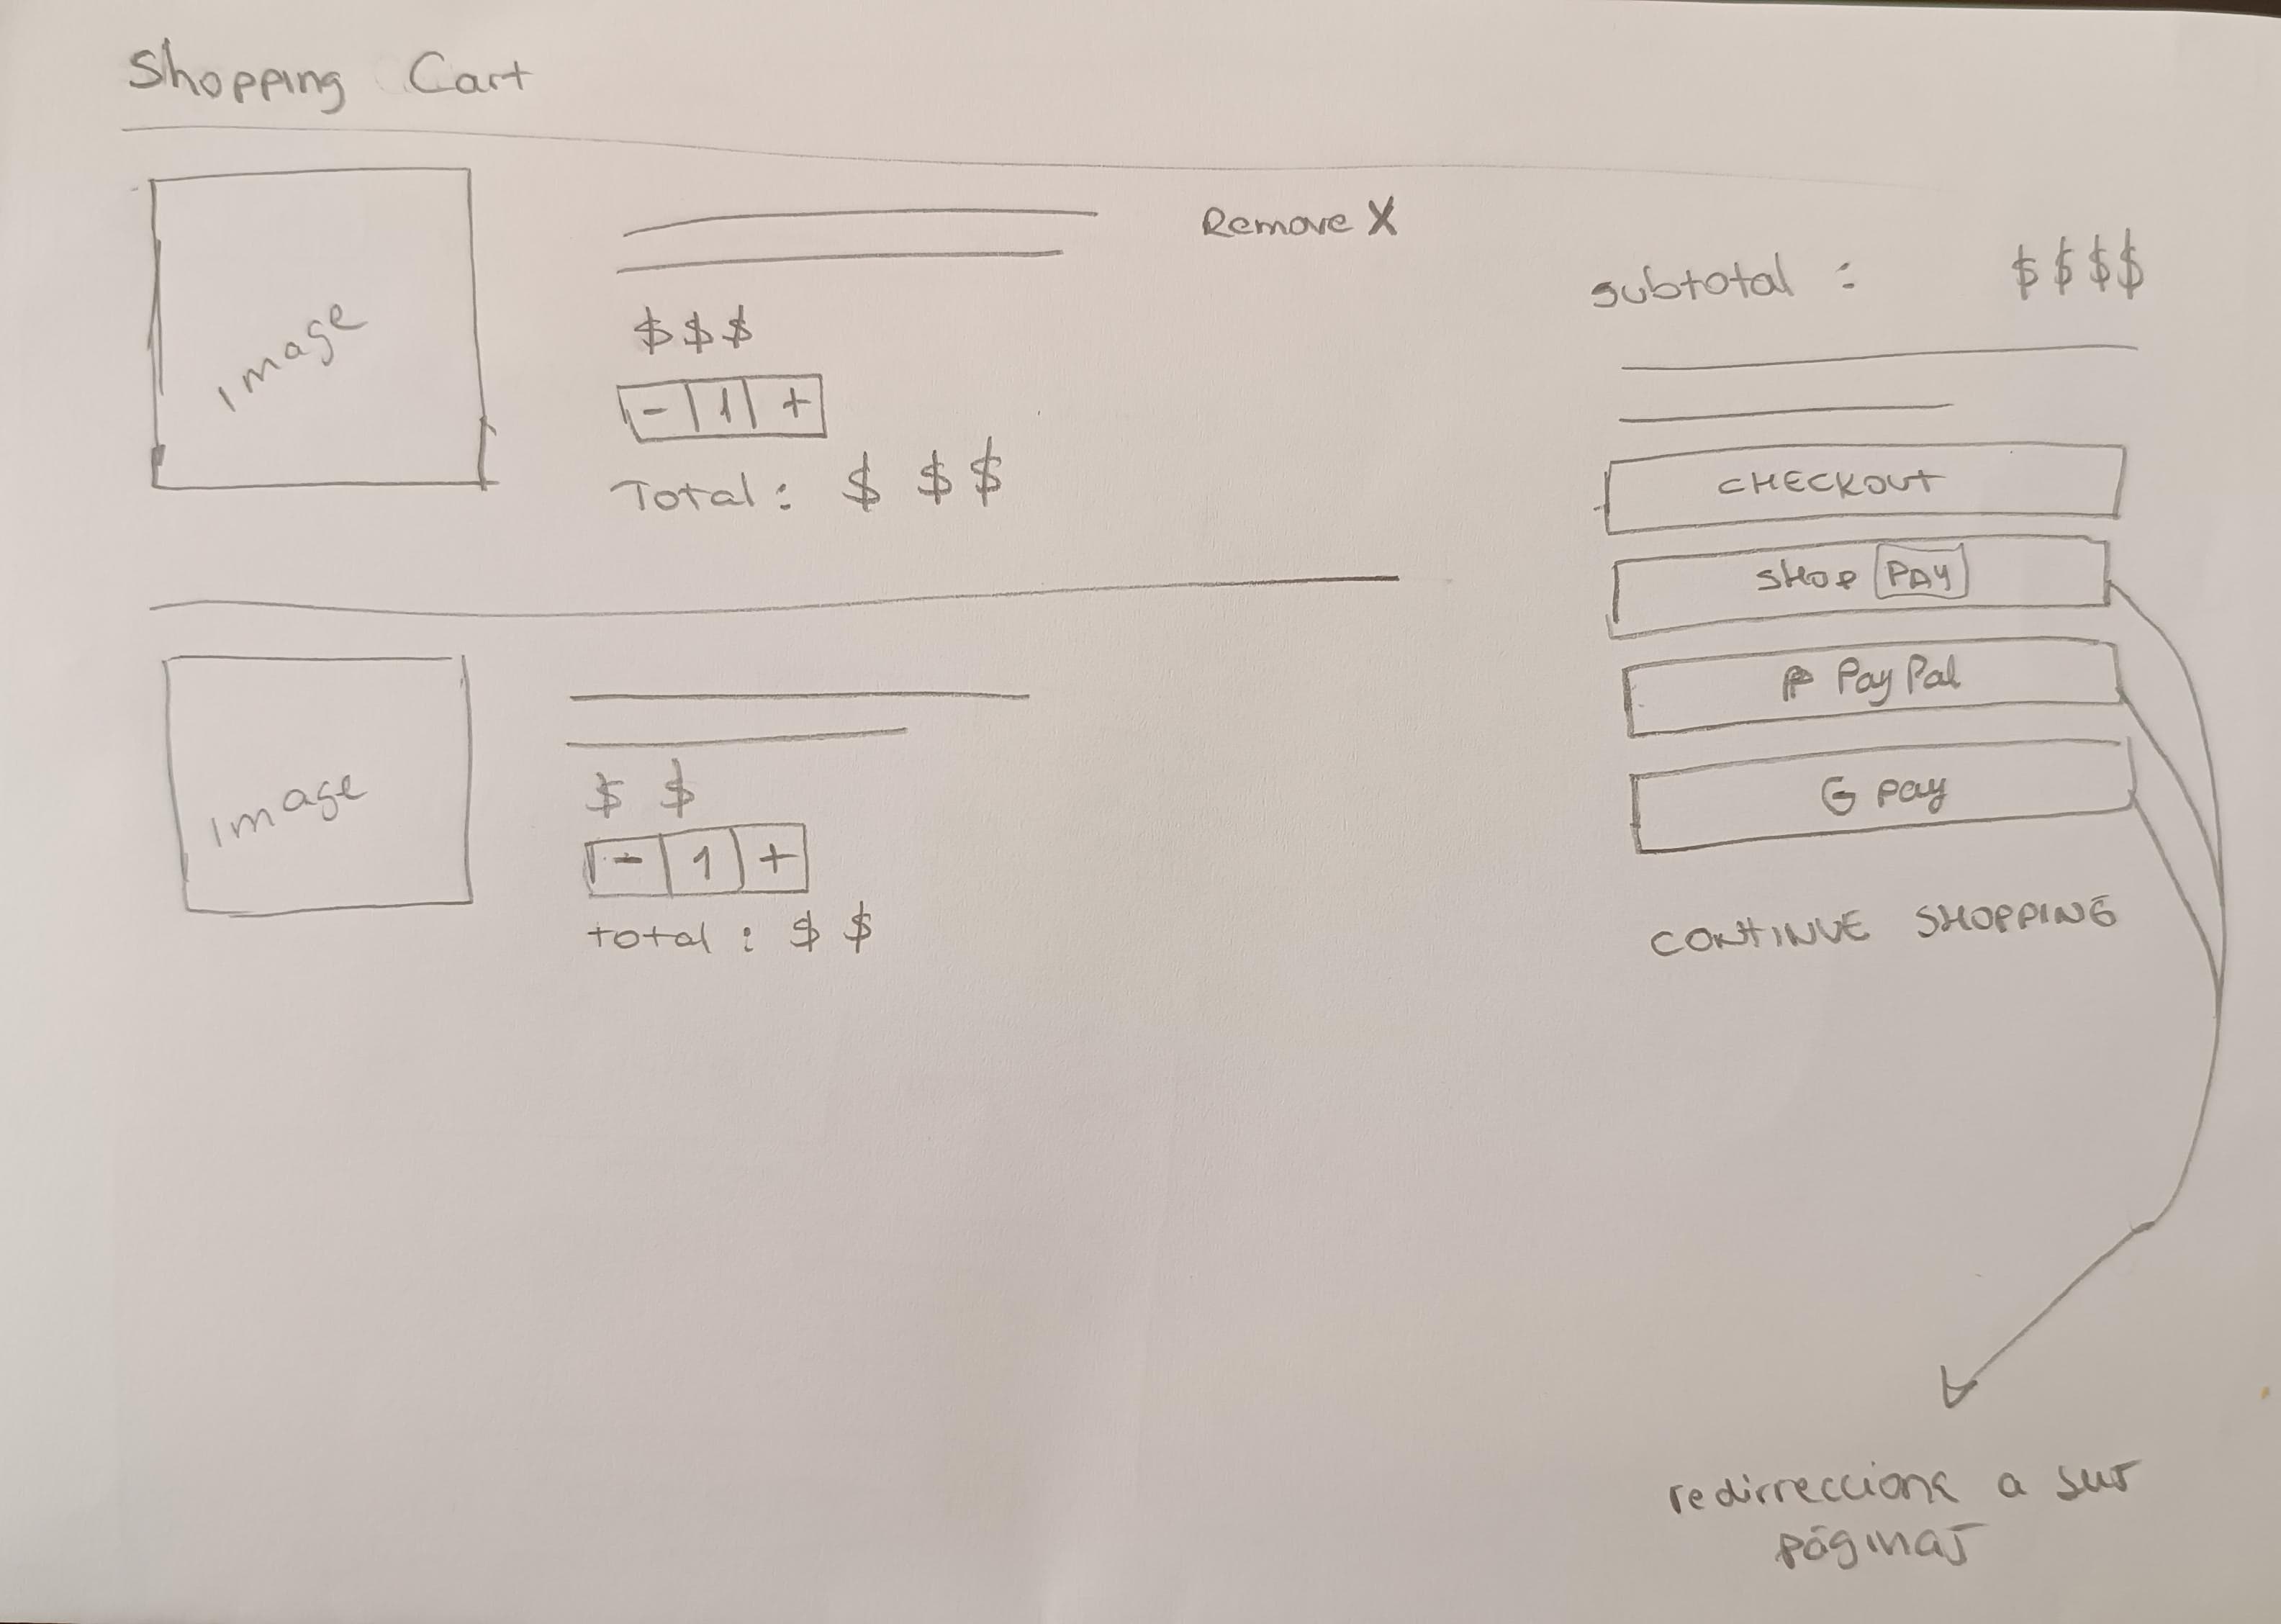 Shopping Cart
Image
Remove X
$$$
- 1 +
Total: $ $ $
Image
$ $
- 1 +
total: $ $
subtotal : $$$$
CHECKOUT
SHOP PAY
P PayPal
G pay
CONTINUE SHOPPING
redirrecciona a sus
páginas